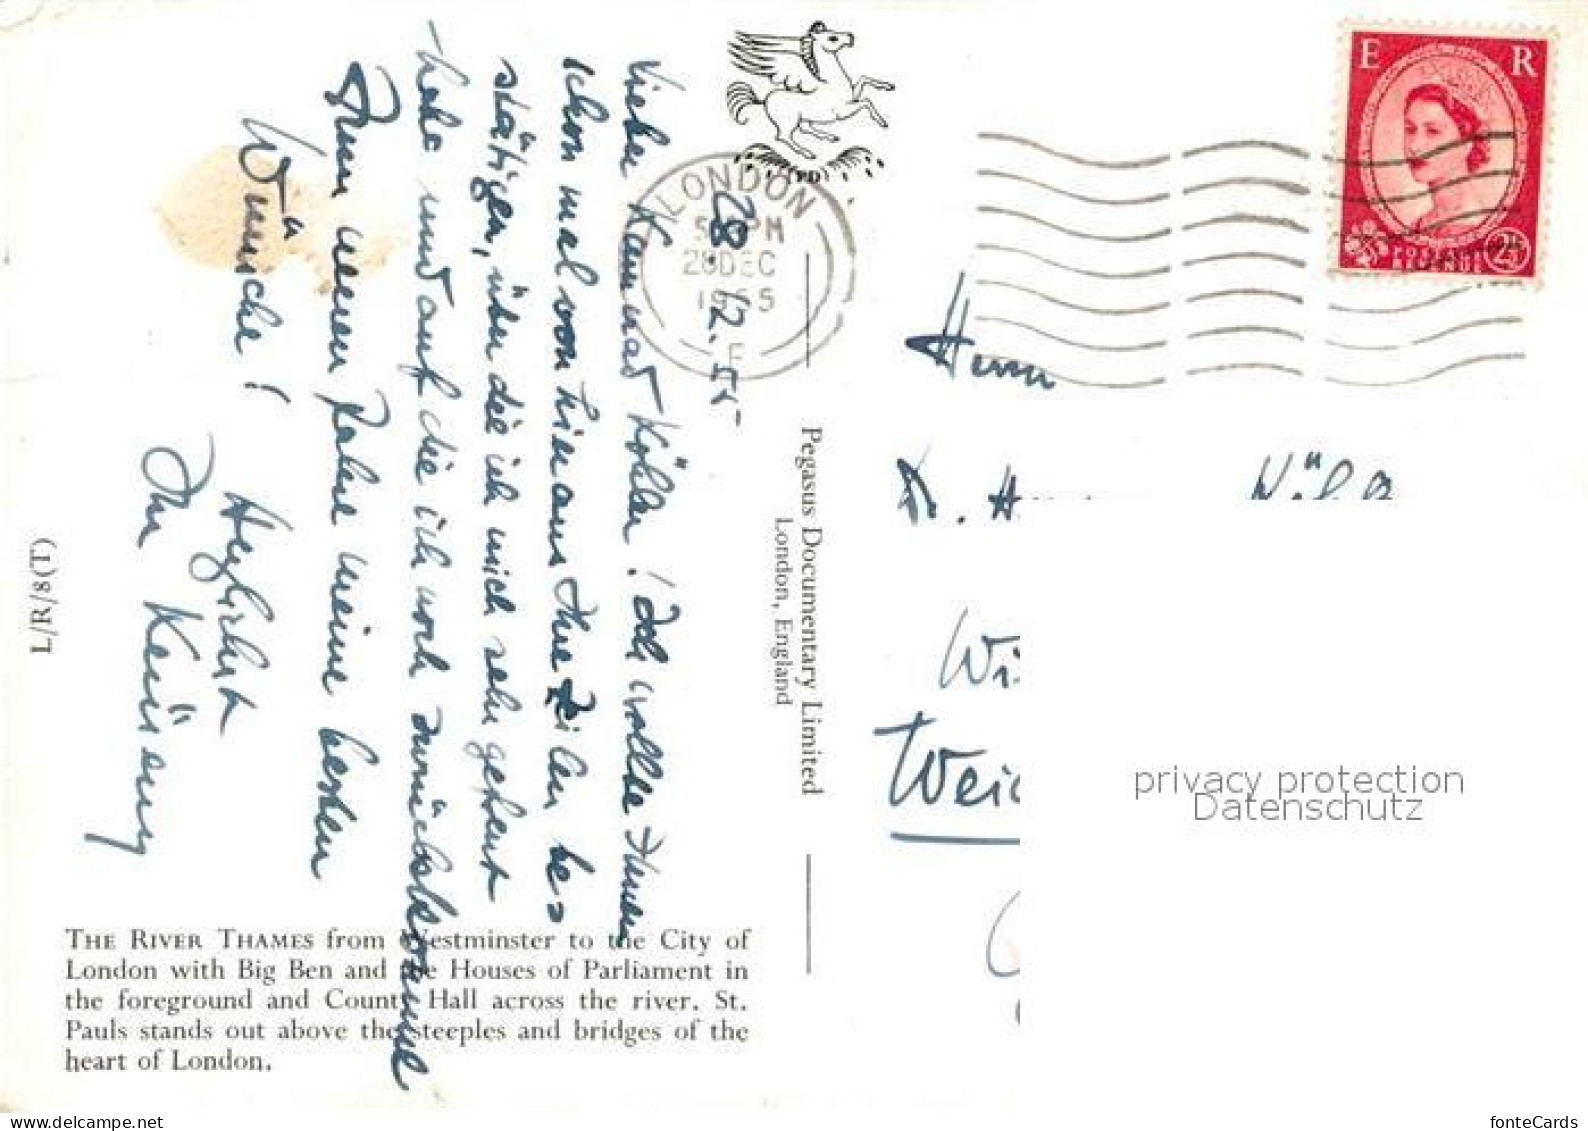 28.12.55
Lieber Kamerad Köhler! Ich wollte Ihnen
schon mal von hier aus Ihre Zeilen be=
stätigen, über die ich mich sehr gefreut
habe und auf die ich noch zurückkomme
Zum neuen Jahre meine besten
Wünsche!
Herzlichst
Ihr
L/R/8(T)
THE RIVER THAMES from Westminster to the City of
London with Big Ben and the Houses of Parliament in
the foreground and County Hall across the river. St.
Pauls stands out above the steeples and bridges of the
heart of London.
Pegasus Documentary Limited
London, England
(PD)
LONDON
PM
28 DEC
1955
E R
POSTAGE
REVENUE
2½D
Herrn
privacy protection
Datenschutz
www.delcampe.net
fonteCards